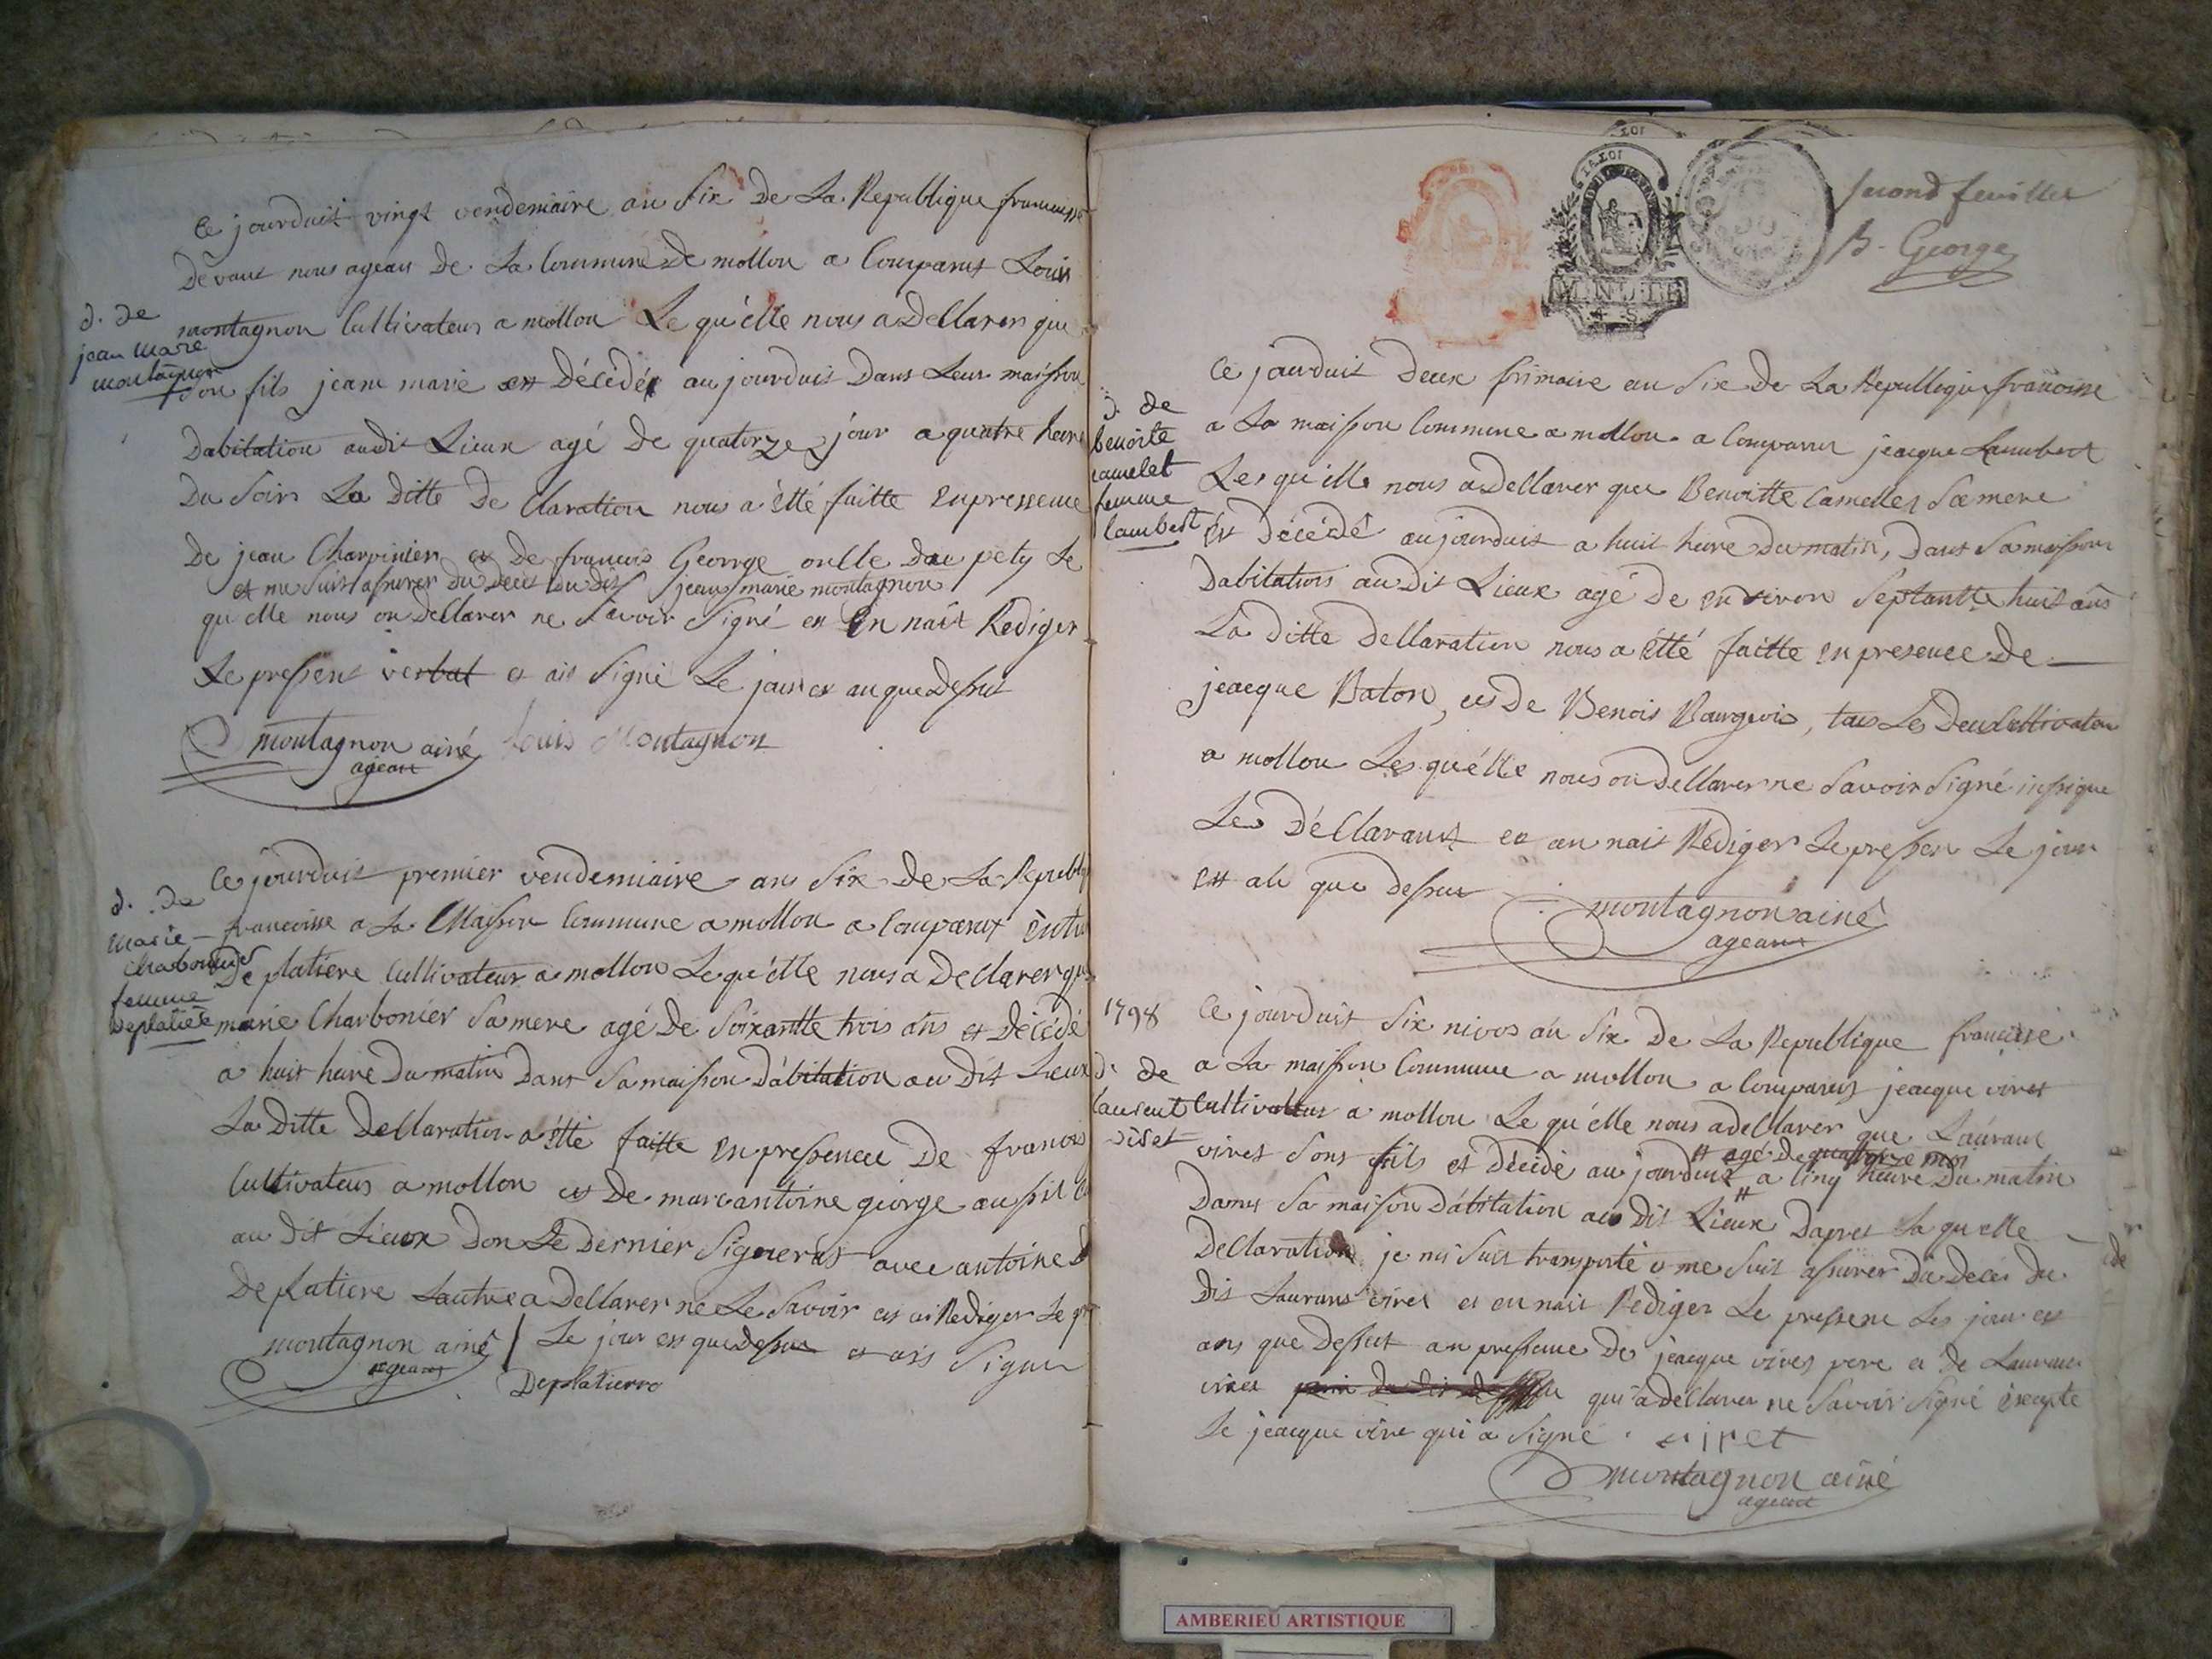 Ce jourduit vingt vendemiaire an six de La Republique francoisse
devant nous agean de La Commune de mollon a Comparut Louis
montagnon Cultivateur a mollon Le qu'elle nous a Dellarer que
son fils jean marie est décédé aujourduit Dans Leur maisson
Dabitation audit Lieux agé de quatorze jour a quatre heure
Du Soir La ditte De Claration nous a étté faitte enpressence
De jean Charvinier et De francois George
et me suis assurer du deces du dit jean marie montagnon
qu'elle nous on dellarer ne Savoir Signé et en nait Rediger
Le pressent verbal et ais Signé Le jour et an que Dessut
montagnon ainé Louis Montagnon
agean
d. de
jean marie
montagnon
Ce jourduit premier vendemiaire ans Six De La Republi
francoisse a La Maisson Commune a mollon a Comparut
De platiere Cultivateur a mollon Le qu'elle nous a Declarer que
marie Charbonier Sa mere agé De Soixantte trois ans et Décédé
a huit heure Du matin Dans Sa maisson D'abitation au dit Lieux
La Ditte Dellaration a étté faitte en pressence De francois
Cultivateur a mollon et De marcantoine george aussit
au dit Lieux Don Le Dernier Signeras avec antoine
De platiere Lautre a Dellarer ne Le Savoir et ai Rediger Le
Le jour et que dessus et ais Signer
montagnon ainé
agean
Deplatierre
d. de
marie
Charbonnier
femme
Deplatière
second feuillet
B. George
MINUTE
Ce jourduit Deux frimaire an Six De La Republique francoisse
a La maisson Commune a mollon a Comparut jeacque Lambert
Les qu'elle nous a Dellarer que Benoitte Camellet Sa mere
est Décédé aujourduit a huit heure Du matin, Dans Sa maisson
Dabitation au Dit Lieux agé De environ Septantte huit ans
La Ditte Dellaration nous a étté faitte en presence De
jeacque Baton, et De Benois Bourgeois, tous Les Deux Cultivateur
a mollon Les qu'elle nous on Dellarer ne Savoir Signé
Le Déclarant et an nait Rédiger Le pressen Le jour
et an que dessus
montagnon ainé
agean
d. de
benoite
camelet
femme
lambert
1798
Ce jourduit Six nivos an Six De La Republique francoise
a La maisson Commune a mollon a Comparut jeacque viret
Cultivateur a mollon Le qu'elle nous a dellarer que Lauranc
agé de quattorze moi
viret Sont fils et Décédé au jourduit a cinq heure Du matin
Dans Sa maison D'abitation au Dit Lieux Dapret La qu'elle
Declaration je mi Suis transporté et me Suit assurer Du Décés Du
Dit Laurans viret et en nait Rediger Le pressent Les jour et
ans que Dessut an pressence De jeacque viret pere et De Lauranc
viret qui a dellarer ne Savoir Signé excepte
Le jeacque viret qui a Signé viret
montagnon ainé
agean
d. de
laurent
viret
AMBERIEU ARTISTIQUE